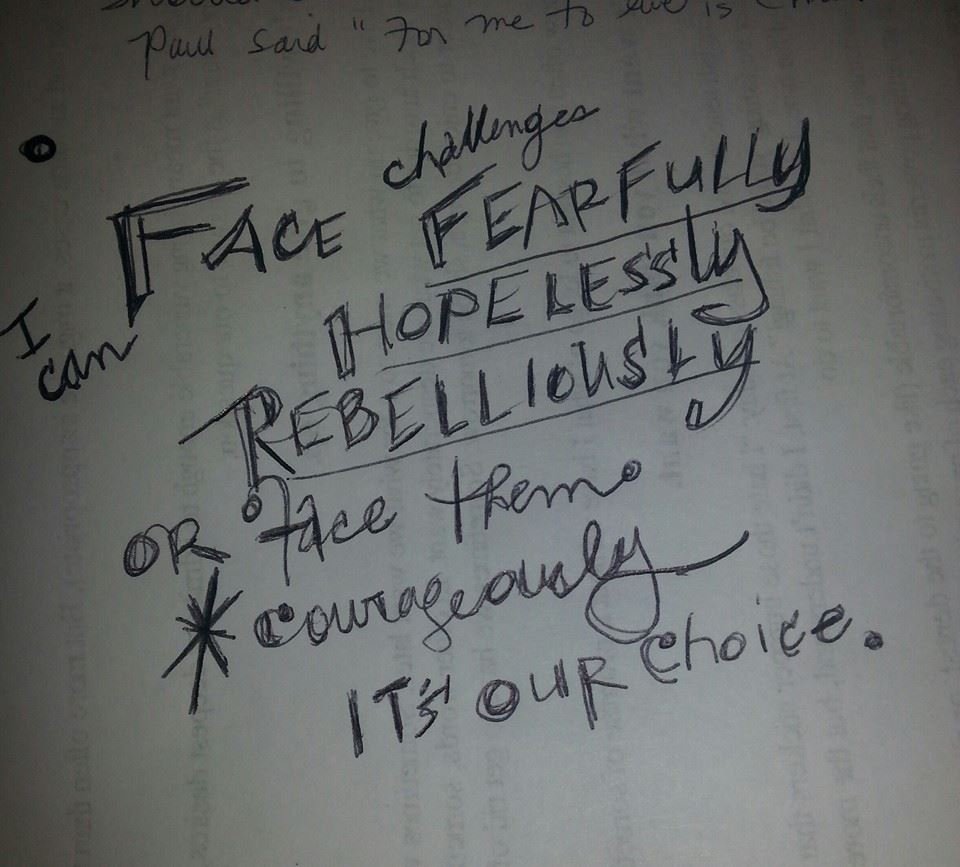 Paul said "For me to live is
challenges
I can FACE FEARFULLY
HOPELESSLY
REBELLIOUSLY
OR face them
* courageously
IT'S OUR choice.